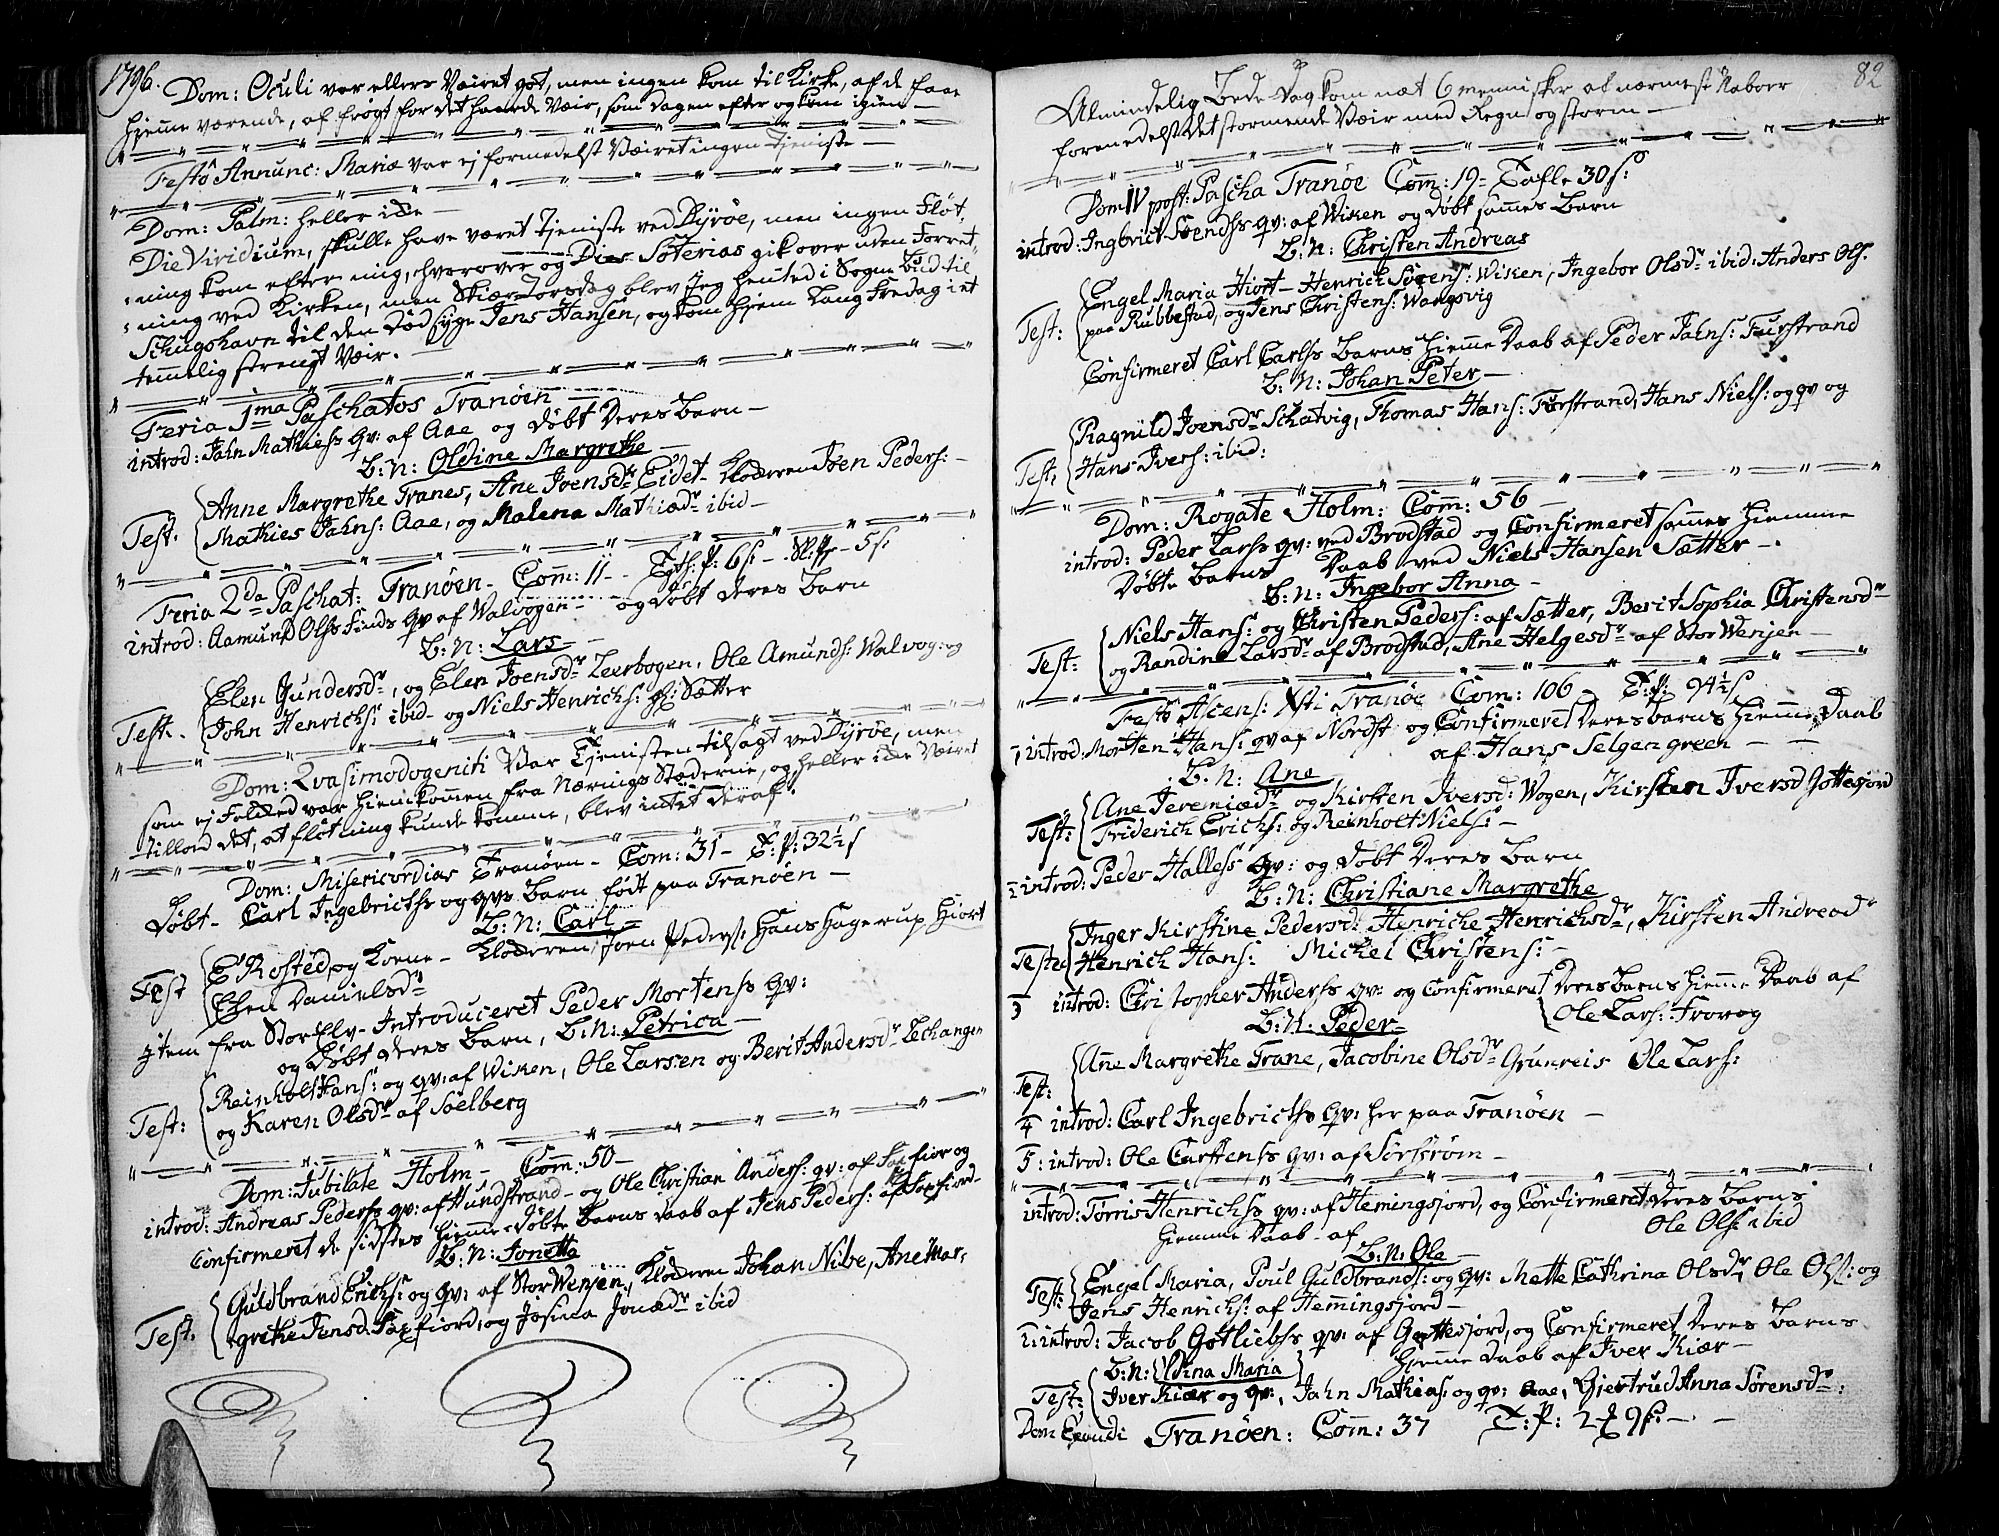 1796.
Dom: Oculi var ellers Væiret got, men ingen kom til Kirke, af de faae
hjemme værende, af frögt for det haarde Væir, som dagen efter og kom igien —
Festô Annunc: Mariæ var ej formedelst Væiret ingen Tjeniste —
Dom: Palm: heller icke —
Die Viridium, skulle have været Tjeniste ved Dyröe, men ingen Flöt-
:ning kom efter mig, hvorover og Dies Soterias gik over uden Forret-
:ning ved Kirken, men Skiær Torsdag blev Jeg hented i Sogne Bud til
Schugshavn til den Dödsyge Jens Hansen, og kom hjem Lang Fredag i et
temmelig strengt Væir. —
Feria 1ma Paschatos Tranöen —
introd: Jahn Mathiess qv: af Aae og döbt Deres Barn —
B: N: Oldine Margrethe —
Test: Anne Margrethe Tranes, Ane Joensdr Eidet — Klockeren Joen Peders: —
Mathies Jahns: Aae, og Malena Mathiædr ibid —
Feria 2da Paschat: Tranöen — Com: 11 — 6 s — 5 s
introd: Aamund Olss Finds qv af Walvogen — og döbt deres Barn
B: N: Lars —
Test. Elen Gundersdr, og Elen Joensdr Leerbogen, Ole Amunds: Walvog: og
John Henrichs: ibid — og Niels Henrichs: Sætter
Dom: Qvasimodogeniti Var Tjenisten tilsagt ved Dyröe, men
som ej Folcked var hjemkommen fra Nærnings Stæderne, og heller icke Væiret
tillod det, at flötning kunde komme, blev intet deraf.
Dom: Misericordias Tranöen — Com: 31 — T: P: 32½ s
Döbt — Carl Ingebricths og qvs Barn födt paa Tranöen —
B: N: Carl —
Test E: Rosted og Kone — Klockeren Joen Peders: Hans Hagerup Hiort
Elen Danielsdr
Item fra StorElv — Introduceret Peder Mortenss qv:
og Döbt deres Barn, B: N: Petrica —
Test: Reinholt Hans: og qv: af Wiken, Ole Larsen og Berit Andersdr Lechangen
og Karen Olsdr af Söelberg
Dom: Jubilate Holm — Com: 50 —
introd: Andreas Pederss qv: af Hundstrand — og Ole Christian Anders: qv: af Saxfior og
Confirmeret de sidstes hiemme Döbte Barns Daab af Jens Peders: af Saxfiord —
B: N: Jonetta
Test. Guldbrand Erichs: og qv: af StorWenjen, Klockeren Johan Nibe, Ane Mar:
:grethe Jensd: Saxfiord, og Josina Jonædr ibid
82
Almindelig Bede Dag kom næt 6 mennisker af nærmest Naboer
forenedelst det stormende Væir med Regn og storm —
Dom IV post: Pascha Tranöe Com: 19 — Tafle 30 s:
introd: Ingbrict Svendss qv: af Wiken og döbt sammes Barn
B: N: Christen Andreas
Test: Engel Maria Hiort — Henrich Sörens: Wiken, Ingebor Olsdr ibid: Anders Ols:
paa Rubbestad, og Jens Christens: Wangsvig
Confirmeret Carl Carlss Barns hiemme Daab af Peder Jahns: Furstrand
B: N: Johan Peter —
Test: Ragnild Joensdr Schatvig, Thomas Hans: Furstrand, Hans Niels: og qv og
Hans Ivers: ibid:
Dom: Rogate Holm: Com: 56 —
introd: Peder Larss qv: ved Brodstad og Confirmeret sammes hiemme
Döbte Barns Daab ved Niels Hansen Sætter —
B: N: Ingebor Anna —
Test: Niels Hans: og Christen Peders: af Sætter, Berit Sophia Christensdr
og Randine Larsdr af Brodstad, Ane Helgesdr af StorWenjen —
Festô Ascens: Xsti Tranöe Com: 106 — T: P: 94½ s
1 introd: Morten Hans: qv af Nordst og Confirmeret Deres barns hiemme Daab
af Hans Selgengreen —
B: N: Ane
Test: Ane Jeremiædr og Kirsten Iversd: Wogen, Kirsten Iversd Gottesjord
Friderich Erichs: og Reinholt Niels: —
2 introd: Peder Halless qv: og döbt Deres Barn
B: N: Christiane Margrethe
Testes Inger Kirstine Pedersd: Henriche Henrichsdr, Kirsten Andreædr
Henrich Hans: Michel Christens: —
3 introd: Christopher Anderss qv: og Confirmeret Deres barns hiemme Daab af
Ole Lars: Frovog
B: N: Peder —
Test: Anne Margrethe Trane, Jacobine Olsdr Grunreis Ole Lars:
4 introd: Carl Ingebricths qv: her paa Tranöen —
5: introd: Ole Carstenss qv: af Sörström —
introd: Törris Henrichss qv: af Hemingsjord, og Confirmeret Deres Barns
hiemme Daab — af Ole Ols: ibid
B: N: Ole —
Test: Engel Maria, Poul Guldbrands: og qv: Mette Cathrina Olsdr, Ole Ols: og
Jens Henrichs: af Hemmingsjord —
introd: Jacob Gotliebss qv: af Gottesjord, og Confirmeret Deres Barns
hjemme Daab af Iver Kiær —
B: N: Oldina Maria
Test: Iver Kiær og qv:, Jahn Mathias: og qv: Aae, Gjertrud Anna Sörensdr:
Dom Exaudi Tranöen: Com: 37 T: P: 2 9 s: —